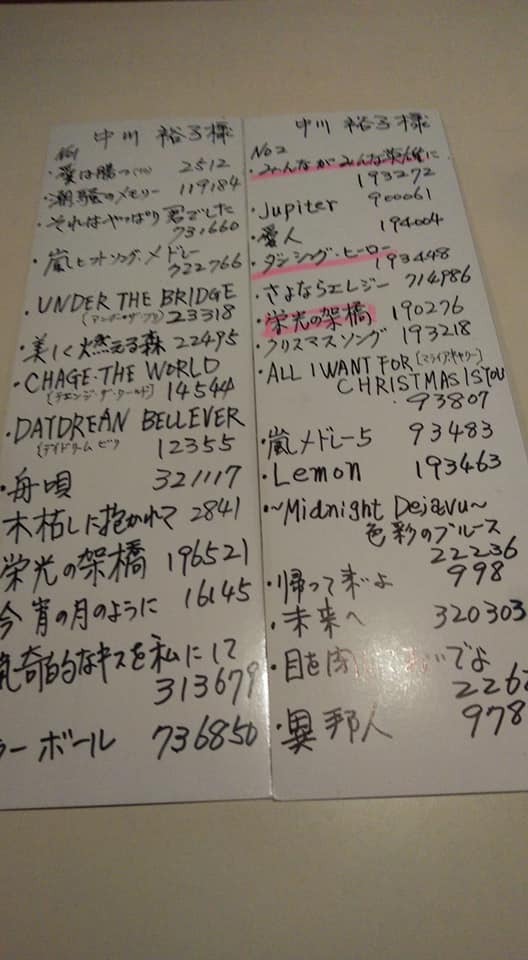 中川 裕子様
No1
・愛は勝つ 2512
・潮騒のメモリー 119184
・それはやっぱり君でした
731660
・嵐ヒットソング・メドレー
722766
・UNDER THE BRIDGE
23318
・美しく燃える森 22495
・CHAGE・THE WORLD
[チエンジ・ザ・ワールド] 14544
・DAYDREAN BELLEVER
[デイドリーム ビリ 12355
・舟唄 321117
木枯しに抱かれて 2841
栄光の架橋 196521
今宵の月のように 16145
奇的なキスを私にして
313679
ラーボール 736850
中川 裕子様
No2
・みんながみんな英雄に
193272
・Jupiter 900061
・愛人 194004
・ダンシング・ヒーロー
193448
・さよならエレジー 714986
・栄光の架橋 190276
・クリスマスソング 193218
・ALL I WANT FOR [マライアキャリー]
CHRISTMAS IS YOU
93807
・嵐メドレー5 93483
・Lemon 193463
・~Midnight Dejavu~
色彩のブルース
22236
・帰って来いよ 998
・未来へ 320303
・目を閉じておいでよ
226
・異邦人 978